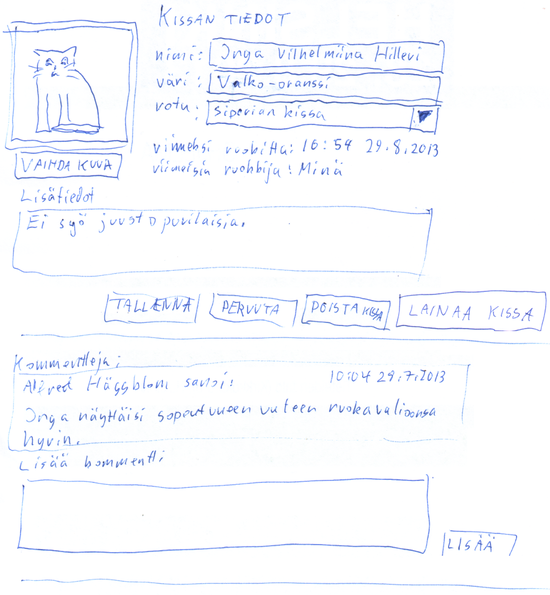 KISSAN TIEDOT
nimi: Inga Vilhelmiina Hillevi
väri: Valko-oranssi
rotu: Siperian kissa
viimeksi ruokittu: 16:54 29.8.2013
VAIHDA KUVA
viimeisin ruokkija: Minä
Lisätiedot
Ei syö juustopurilaisia.
TALLENNA PERUUTA POISTA KISSA LAINAA KISSA
Kommentteja:
Alfred Häggblom sanoi: 10:04 29.7.2013
Inga näyttäisi sopeutuneen uuteen ruokavalioonsa
hyvin.
Lisää kommentti
LISÄÄ